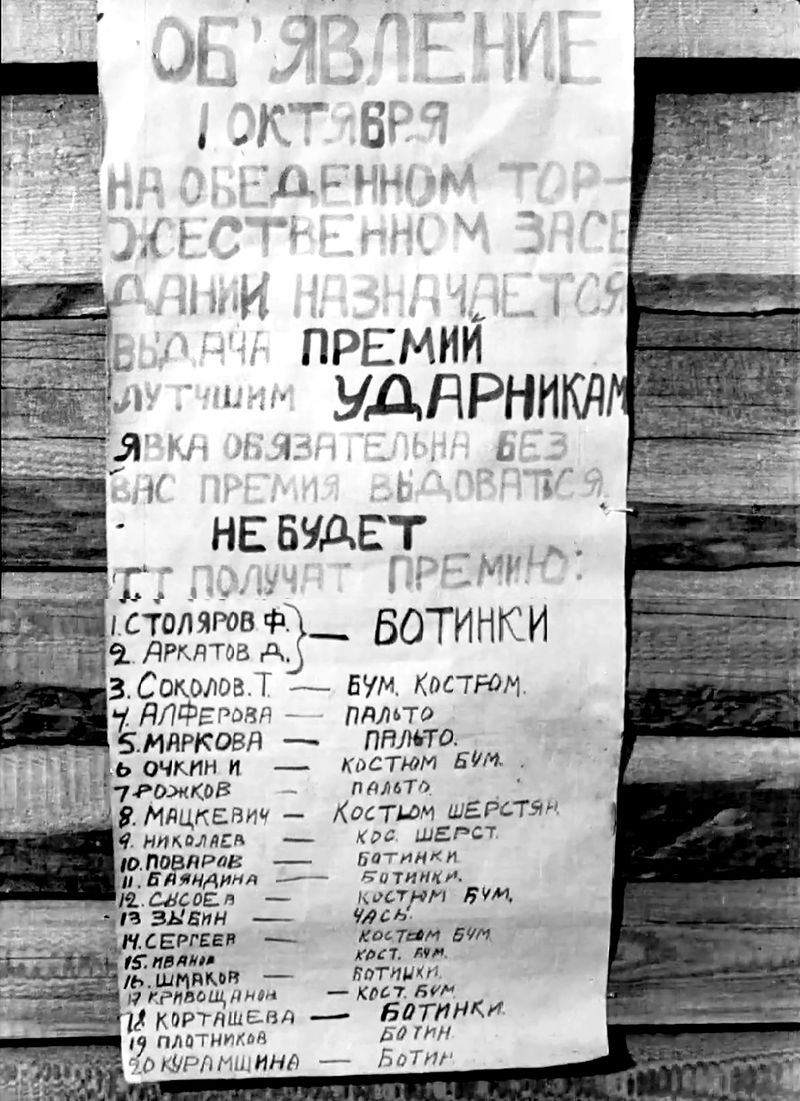 ОБ'ЯВЛЕНИЕ
1 ОКТЯБРЯ
НА ОБЕДЕННОМ ТОР-
ЖЕСТВЕННОМ ЗАСЕ
ДАНИИ НАЗНАЧАЕТСЯ
ВЫДАЧА ПРЕМИЙ
ЛУТЧШИМ УДАРНИКАМ
ЯВКА ОБЯЗАТЕЛЬНА БЕЗ
ВАС ПРЕМИЯ ВЫДОВАТЬСЯ
НЕ БУДЕТ
ТТ ПОЛУЧАТ ПРЕМИЮ:
1. СТОЛЯРОВ Ф. } — БОТИНКИ
2. АРКАТОВ Д.
3. СОКОЛОВ. Т. — БУМ. КОСТЮМ.
4. АЛФЕРОВА — ПАЛЬТО
5. МАРКОВА — ПАЛЬТО.
6 ОЧКИН И — КОСТЮМ БУМ.
7 РОЖКОВ — ПАЛЬТО.
8. МАЦКЕВИЧ — КОСТЬЮМ ШЕРСТЯН.
9. НИКОЛАЕВ — КОС. ШЕРСТ.
10. ПОВАРОВ — БОТИНКИ
11. БАЯНДИНА — БОТИНКИ.
12. СЫСОЕВ — КОСТЮМ БУМ.
13 ЗЫБИН — ЧАСЫ.
14. СЕРГЕЕВ — КОСТЬЮМ БУМ
15. ИВАНОВ КОСТ. БУМ.
16. ШМАКОВ — БОТИНКИ.
17 КРИВОЩАНОВ — КОСТ. БУМ
18 КОРТАШЕВА — БОТИНКИ.
19 ПЛОТНИКОВ БОТИН.
20 КУРАМШИНА — БОТИН